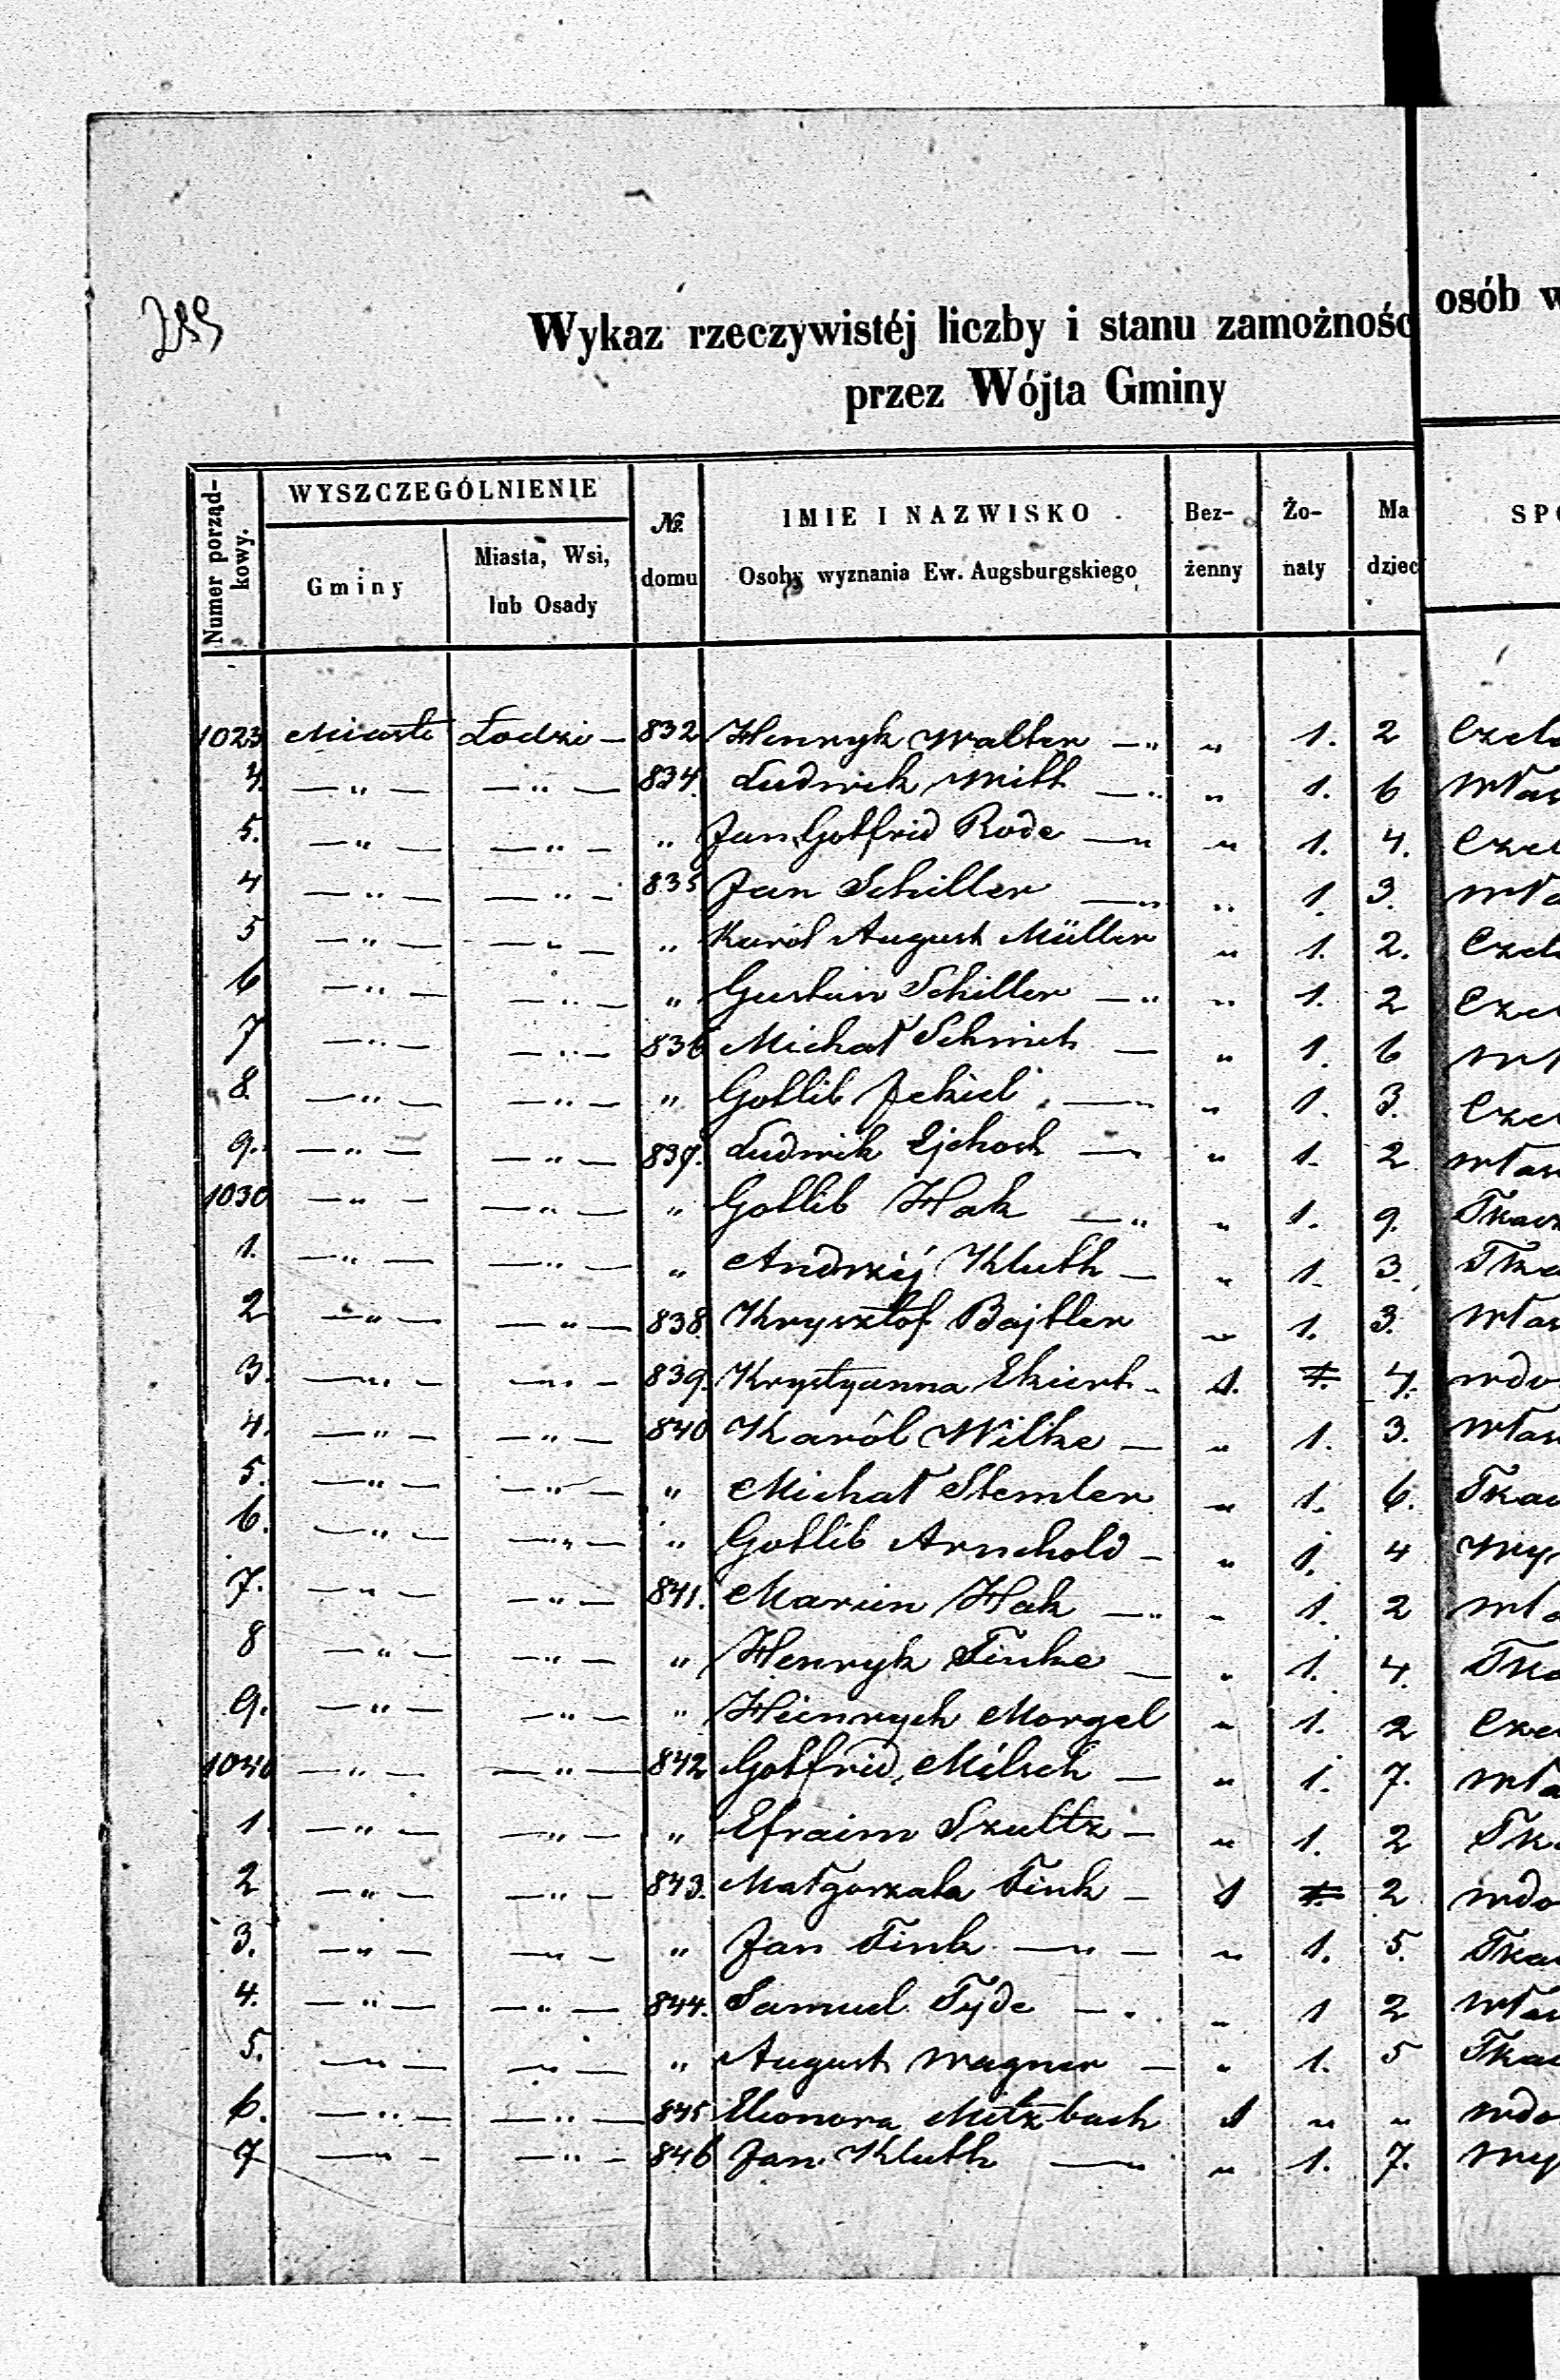 Wykaz rzeczywistéj liczby i stanu zamożnośc osób w
przez Wójta Gminy
Numer porząd-kowy. WYSZCZEGÓLNIENIE № domu IMIE I NAZWISKO Bez-żenny Żo-naty Ma dziec SPO
Gminy Miasta, Wsi, lub Osady Osoby wyznania Ew. Augsburgskiego
1023 Miasto Łodzi — 832 Henryk Walter — „ „ 1. 2 Czela
4. — „ — — „ — 834. Ludwik Witt — „ „ 1. 6 Włas
5. — „ — — „ — „ Jan Gotfrid Rode — „ „ 1. 4. Czel
4 — „ — — „ — 835 Jan Schiller — „ „ 1. 3. Wła
5 — „ — — „ — „ Karól August Müller „ 1. 2. Czela
6 — „ — — „ — „ Gustaw Schiller — „ „ 1. 2 Czel
7 — „ — — „ — 836 Michał Schmit — „ 1. 6 Wł
8. — „ — — „ — „ Gottlib Jekiel — „ „ 1. 3. Czel
9. — „ — — „ — 837. Ludwik Ejchoch — „ „ 1. 2 Włas
1030 — „ — — „ — „ Gottlib Hak — „ „ 1. 9. Tkacz
1. — „ — — „ — „ Andrzéj Kluth — „ 1. 3. Tka
2 — „ — — „ — 838 Krysztof Bajtler „ 1. 3. Włas
3. — „ — — „ — 839. Krystyanna Ekiert — 1. 1. 4. wdo
4. — „ — — „ — 840 Karól Wilke — „ 1. 3. Włas
5. — „ — — „ — „ Michał Stemler „ 1. 6. Tkac
6. — „ — — „ — „ Gotlib Arnchold — „ 1. 4 Wy
7. — „ — — „ — 841. Marcin Hak — „ „ 1. 2 wła
8 — „ — — „ — „ Henryk Finke — „ 1. 4. Tka
9. — „ — — „ — „ Heinrych Morgel „ 1. 2 Cze
1040 — „ — — „ — 842 Gotfrid Milsch — „ 1. 7. wła
1. — „ — — „ — „ Efraim Szultz — „ 1. 2 Tk
2 — „ — — „ — 843. Małgorzata Fink — 1 1. 2 wdo
3. — „ — — „ — „ Jan Fink — „ — „ 1. 5. Tkac
4. — „ — — „ — 844. Samuel Tyde — „ „ 1 2 Włas
5. — „ — — „ — „ August Wagner — „ 1. 5 Tkac
6. — „ — — „ — 845 Eleonora Mitzbach 1 „ „ wdo
7 — „ — — „ — 846 Jan Kluth — „ „ 1. 7. Wy